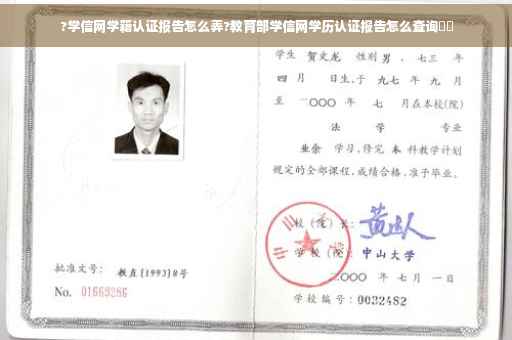 ?学信网学籍认证报告怎么弄?教育部学信网学历认证报告怎么查询□□
学生 贺文龙 性别 男 、七三 年
四 月 日生,于 九七 年 九 月
至 二〇〇〇 年 七 月在本校(院)
法 学 专业
业余 学习,修完 本 科教学计划
规定的全部课程,成绩合格,准予毕业。
校(院)长:
学校(院): 中山大学
二〇〇〇 年 七 月 一 日
批准文号: 教直[1993]8号
No. 01663286
学校编号: 0032482